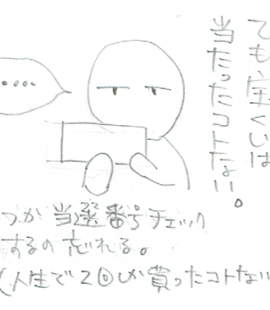 ても宝くじは
当たったコトない。
・・・・
つか当選番号チェック
するの忘れる。
(人生で2回しか買ったコトない